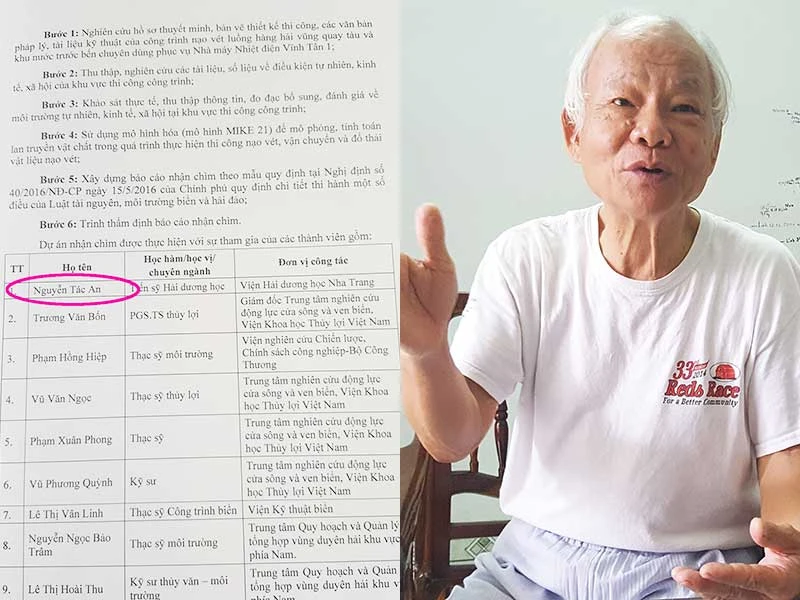 Bước 1: Nghiên cứu hồ sơ thuyết minh, bản vẽ thiết kế thi công, các văn bản
pháp lý, tài liệu kỹ thuật của công trình nạo vét luồng hàng hải vũng quay tàu và
khu nước trước bến chuyên dùng phục vụ Nhà máy Nhiệt điện Vĩnh Tân 1;
Bước 2: Thu thập, nghiên cứu các tài liệu, số liệu về điều kiện tự nhiên, kinh
tế, xã hội của khu vực thi công công trình;
Bước 3: Khảo sát thực tế, thu thập thông tin, đo đạc bổ sung, đánh giá về
môi trường tự nhiên, kinh tế, xã hội tại khu vực thi công công trình;
Bước 4: Sử dụng mô hình hóa (mô hình MIKE 21) để mô phỏng, tính toán
lan truyền vật chất trong quá trình thực hiện thi công nạo vét, vận chuyển và đổ thải
vật liệu nạo vét;
Bước 5: Xây dựng báo cáo nhận chìm theo mẫu quy định tại Nghị định số
40/2016/NĐ-CP ngày 15/5/2016 của Chính phủ quy định chi tiết thi hành một số
điều của Luật tài nguyên, môi trường biển và hải đảo;
Bước 6: Trình thẩm định báo cáo nhận chìm.
Dự án nhận chìm được thực hiện với sự tham gia của các thành viên gồm:
TT Họ tên Học hàm/học vị/ Đơn vị công tác
chuyên ngành
Nguyễn Tác An sỹ Hải dương học Viện Hải dương học Nha Trang
2. Trương Văn Bốn PGS.TS thủy lợi Giám đốc Trung tâm nghiên cứu
động lực cửa sông và ven biển,
Viện Khoa học Thủy lợi Việt Nam
3. Phạm Hồng Hiệp Thạc sỹ môi trường Viện nghiên cứu Chiến lược,
Chính sách công nghiệp-Bộ Công
Thương
4. Vũ Văn Ngọc Thạc sỹ thủy lợi Trung tâm nghiên cứu động lực
cửa sông và ven biển, Viện Khoa
học Thủy lợi Việt Nam
5. Phạm Xuân Phong Thạc sỹ Trung tâm nghiên cứu động lực
cửa sông và ven biển, Viện Khoa
học Thủy lợi Việt Nam
6. Vũ Phương Quỳnh Kỹ sư Trung tâm nghiên cứu động lực
cửa sông và ven biển, Viện Khoa
học Thủy lợi Việt Nam
7. Lê Thị Vân Linh Thạc sỹ Công trình biển Viện Kỹ thuật biển
8. Nguyễn Ngọc Bảo Trâm Thạc sỹ môi trường Trung tâm Quy hoạch và Quản lý
tổng hợp vùng duyên hải khu vực
phía Nam.
9. Lê Thị Hoài Thu Kỹ sư thủy văn – môi trường Trung tâm Quy hoạch và Quản
tổng hợp vùng duyên hải khu
phía Nam
33
2014
Reds Race
For a Better Community